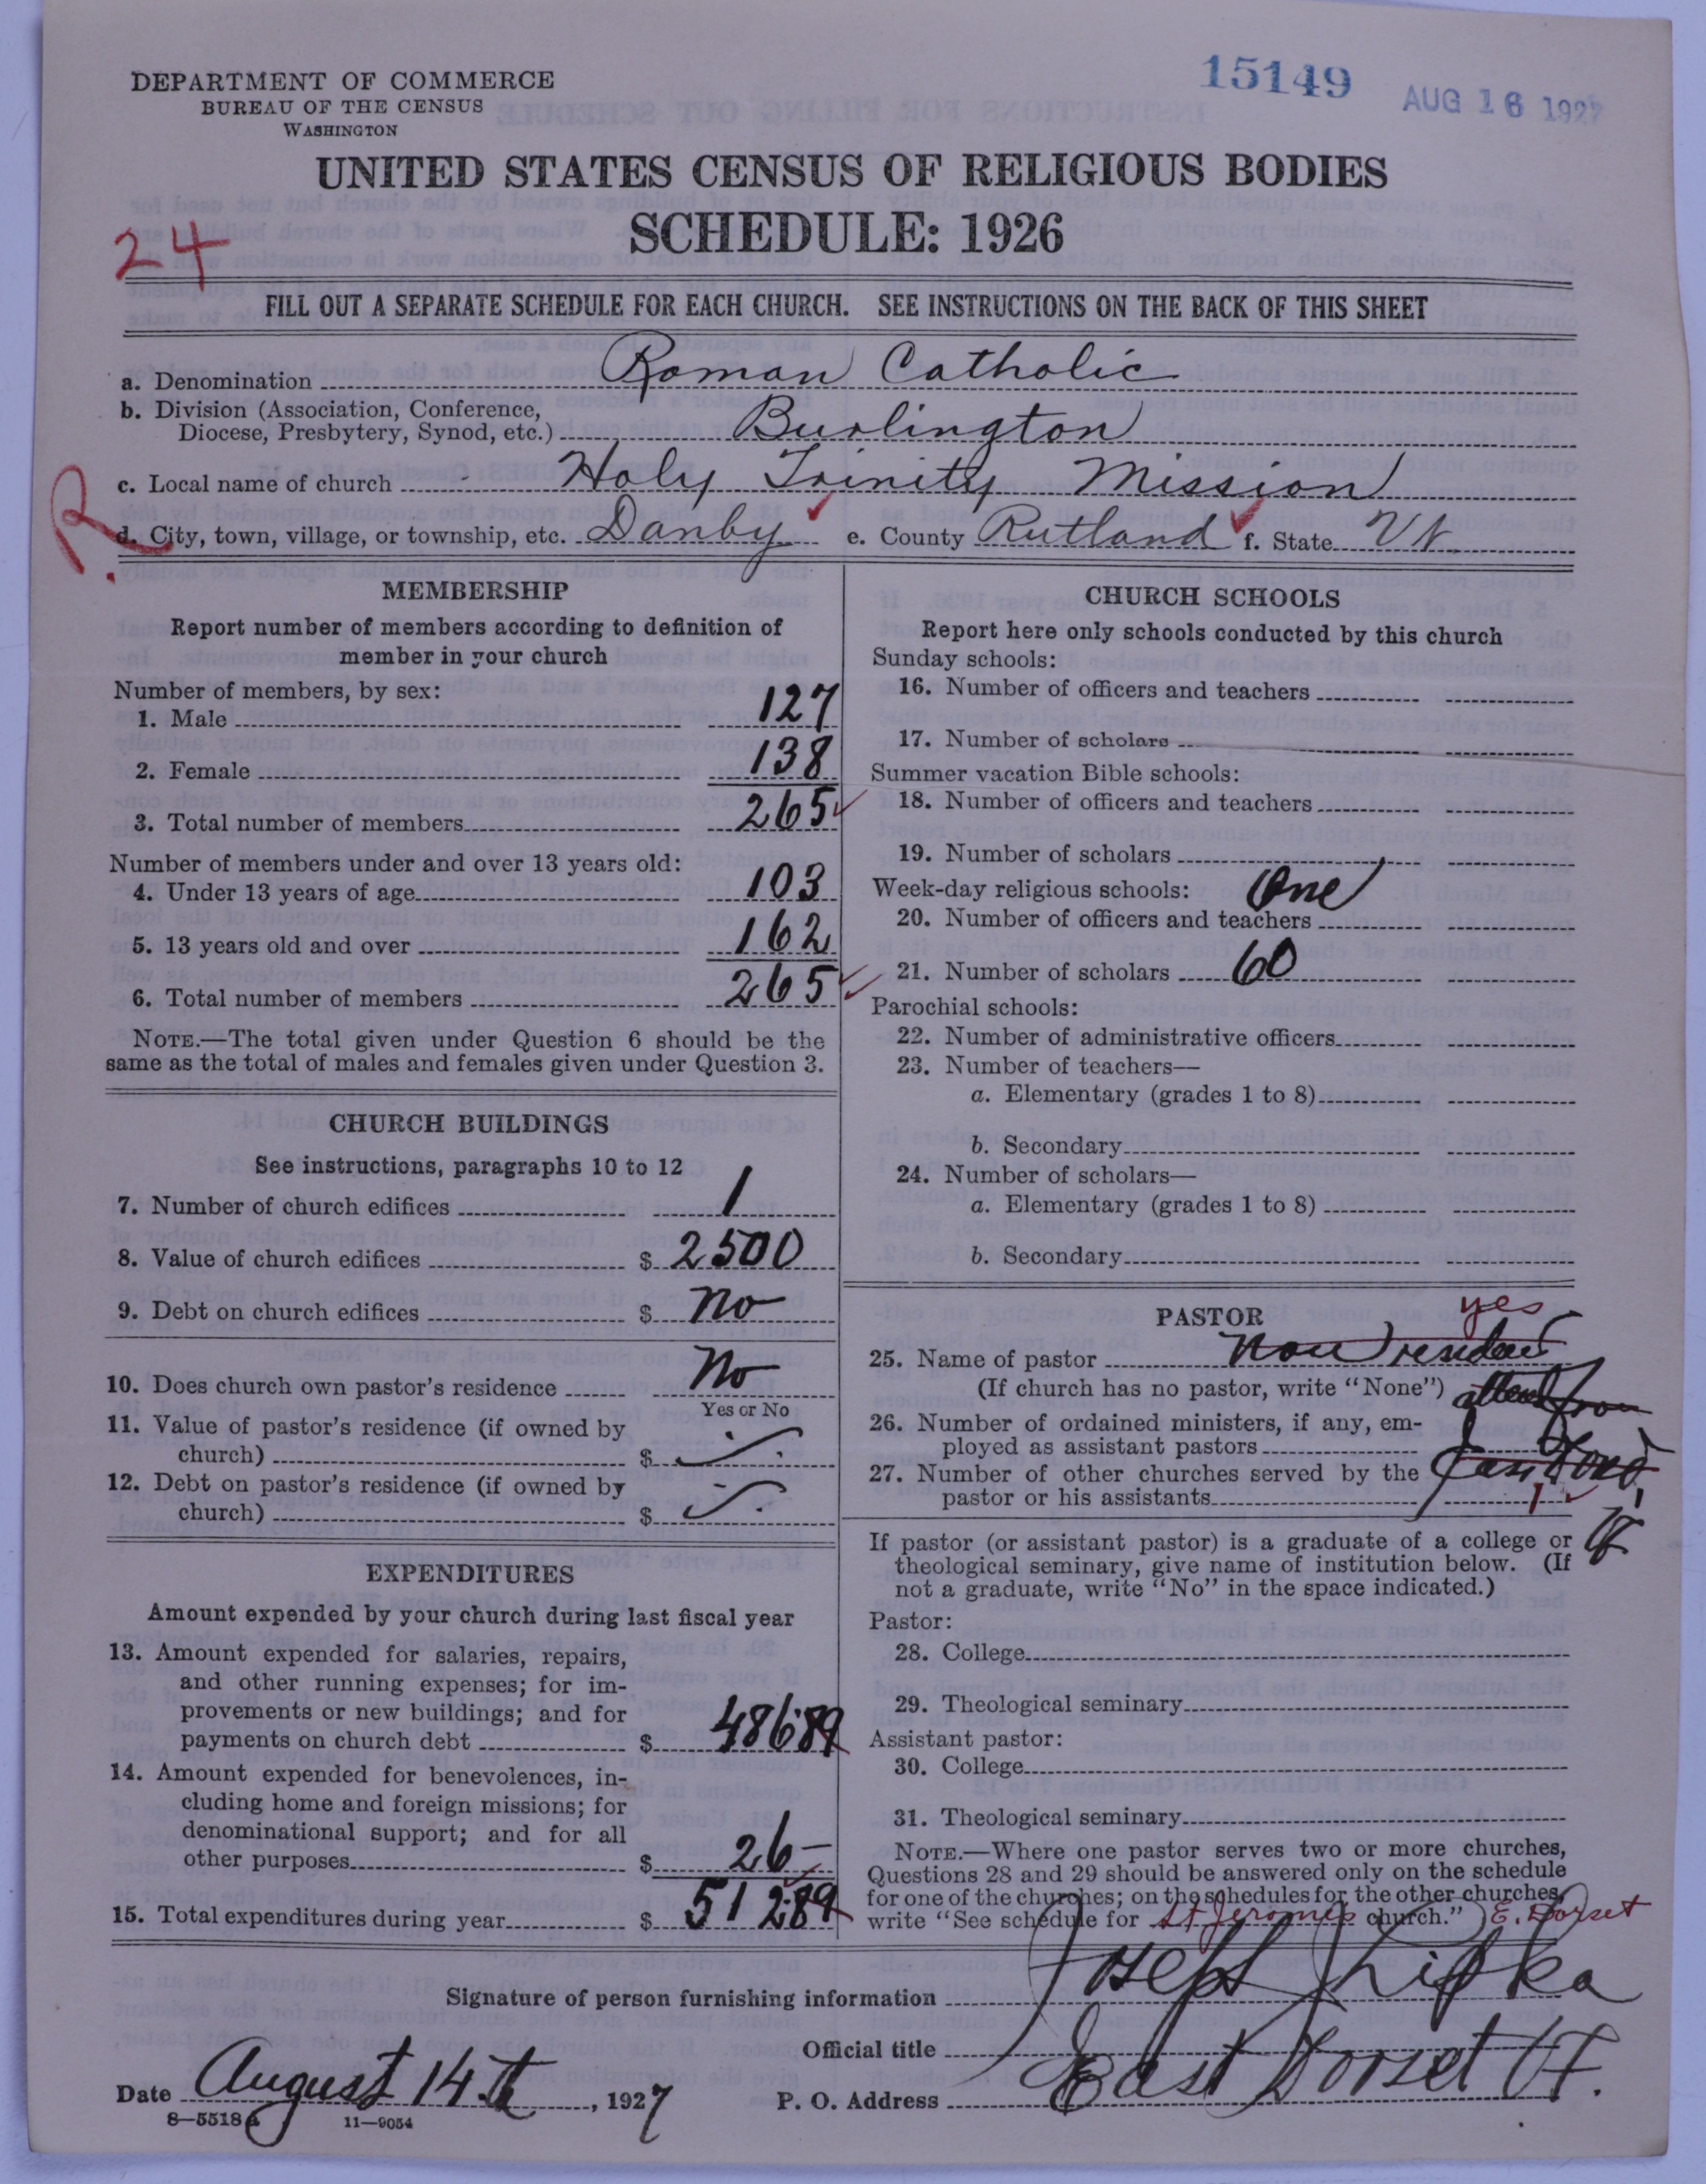 DEPARTMENT OF COMMERCE
BUREAU OF THE CENSUS
WASHINGTON
15149 AUG 16 1927
UNITED STATES CENSUS OF RELIGIOUS BODIES
SCHEDULE: 1926
24
FILL OUT A SEPARATE SCHEDULE FOR EACH CHURCH. SEE INSTRUCTIONS ON THE BACK OF THIS SHEET
a. Denomination Roman Catholic
b. Division (Association, Conference,
Diocese, Presbytery, Synod, etc.) Burlington
c. Local name of church Holy Trinity Mission
R.
d. City, town, village, or township, etc. Danby e. County Rutland f. State Vt.
MEMBERSHIP
Report number of members according to definition of
member in your church
Number of members, by sex:
1. Male 127
2. Female 138
3. Total number of members 265
Number of members under and over 13 years old:
4. Under 13 years of age 103
5. 13 years old and over 162
6. Total number of members 265
NOTE.—The total given under Question 6 should be the
same as the total of males and females given under Question 3.
CHURCH BUILDINGS
See instructions, paragraphs 10 to 12
7. Number of church edifices 1
8. Value of church edifices $ 2500
9. Debt on church edifices $ No
10. Does church own pastor's residence No
Yes or No
11. Value of pastor's residence (if owned by
church) $
12. Debt on pastor's residence (if owned by
church) $
EXPENDITURES
Amount expended by your church during last fiscal year
13. Amount expended for salaries, repairs,
and other running expenses; for im-
provements or new buildings; and for
payments on church debt $ 486 89
14. Amount expended for benevolences, in-
cluding home and foreign missions; for
denominational support; and for all
other purposes $ 26 —
15. Total expenditures during year $ 512 89
CHURCH SCHOOLS
Report here only schools conducted by this church
Sunday schools:
16. Number of officers and teachers
17. Number of scholars
Summer vacation Bible schools:
18. Number of officers and teachers
19. Number of scholars
Week-day religious schools: One
20. Number of officers and teachers
21. Number of scholars 60
Parochial schools:
22. Number of administrative officers
23. Number of teachers—
a. Elementary (grades 1 to 8)
b. Secondary
24. Number of scholars—
a. Elementary (grades 1 to 8)
b. Secondary
PASTOR yes
25. Name of pastor Non resident
(If church has no pastor, write "None") attend from
26. Number of ordained ministers, if any, em-
ployed as assistant pastors
27. Number of other churches served by the East Dorset
pastor or his assistants 1 Vt
If pastor (or assistant pastor) is a graduate of a college or
theological seminary, give name of institution below. (If
not a graduate, write "No" in the space indicated.)
Pastor:
28. College
29. Theological seminary
Assistant pastor:
30. College
31. Theological seminary
NOTE.—Where one pastor serves two or more churches,
Questions 28 and 29 should be answered only on the schedule
for one of the churches; on the schedules for the other churches,
write "See schedule for St Jeromes church." E. Dorset
Signature of person furnishing information Joseph Lipka
Official title
Date August 14th, 1927 P. O. Address East Dorset Vt.
8—5518 a 11—9054